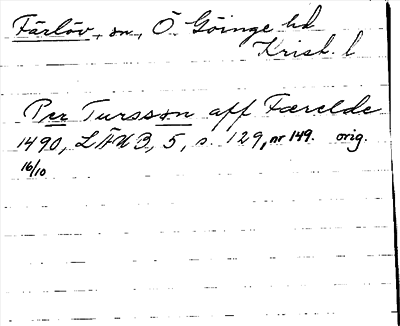 Färlöv, sn, Ö. Göinge hd
Krist. l
Per Tursson aff Færelde
1490, LÄUB, 5, s. 129, nr 149. orig.
16/10